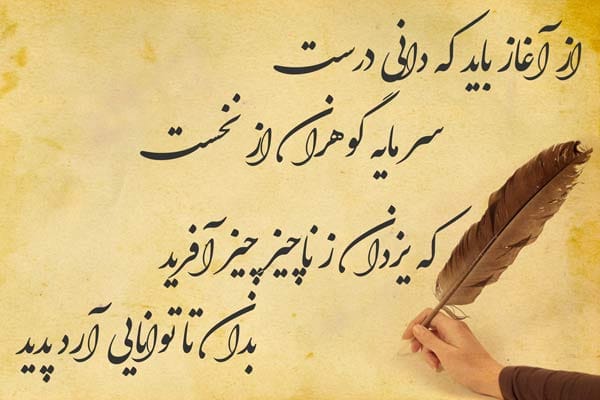 از آغاز باید که دانی درست
سرمایه گوهران از نخست
که یزدان ز ناچیز چیز آفرید
بدان تا توانایی آرد پدید